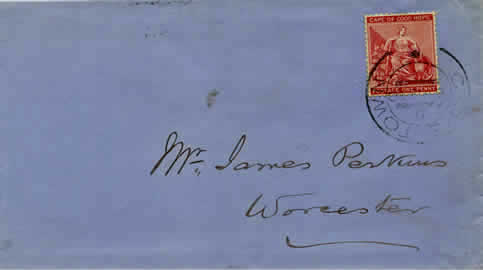 CAPE OF GOOD HOPE
POSTAGE ONE PENNY
Mr. James Perkins
Worcester